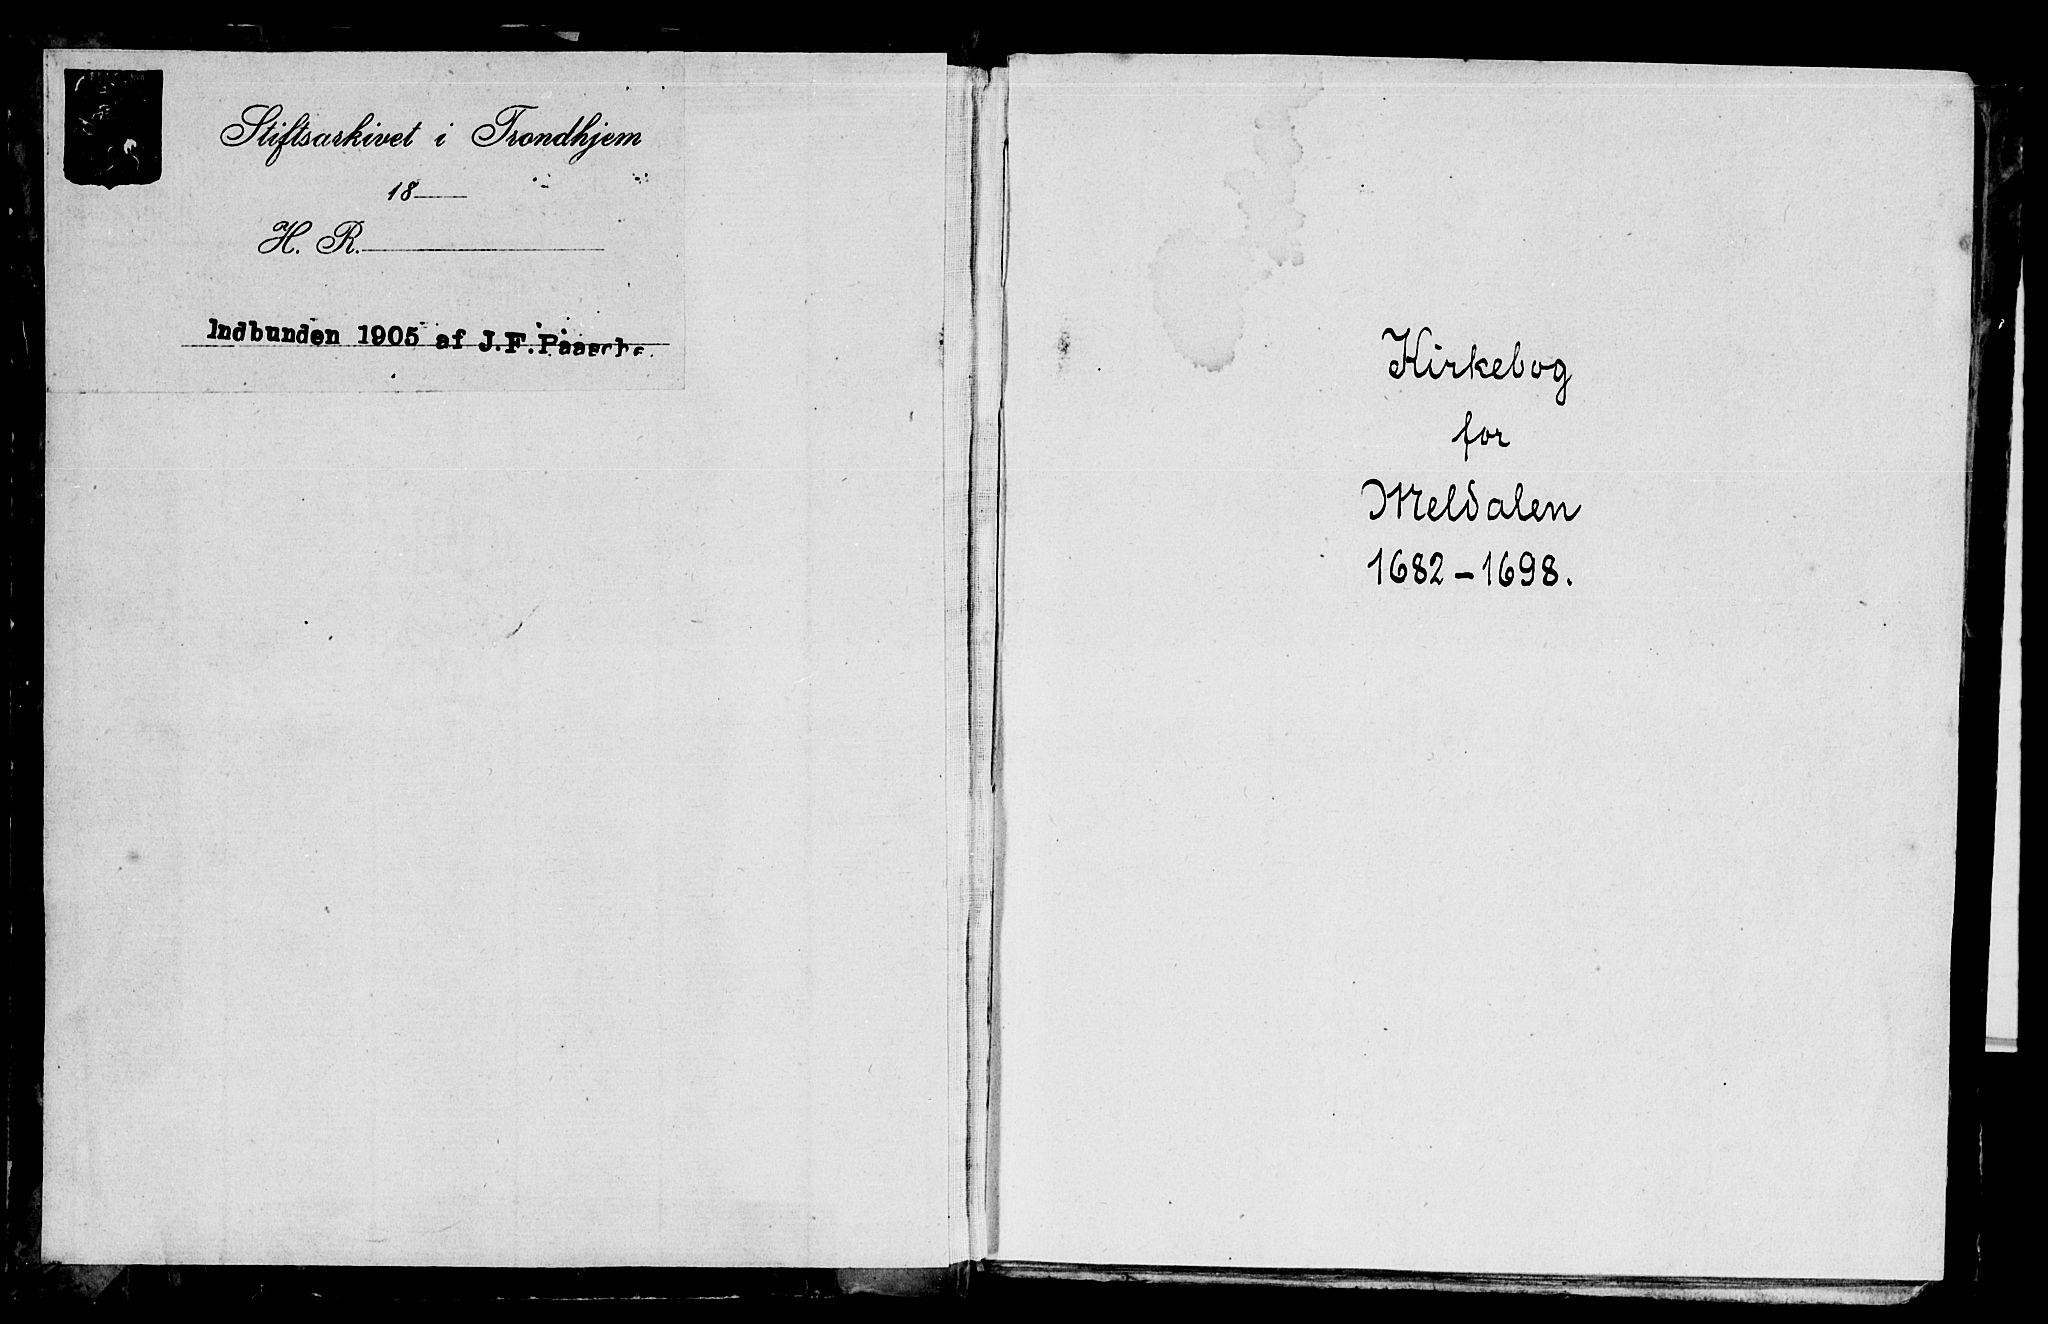 Stiftsarkivet i Trondhjem
18
H. R.
Indbunden 1905 af J.F. Paasche.
Kirkebog
for
Meldalen
1682-1698.